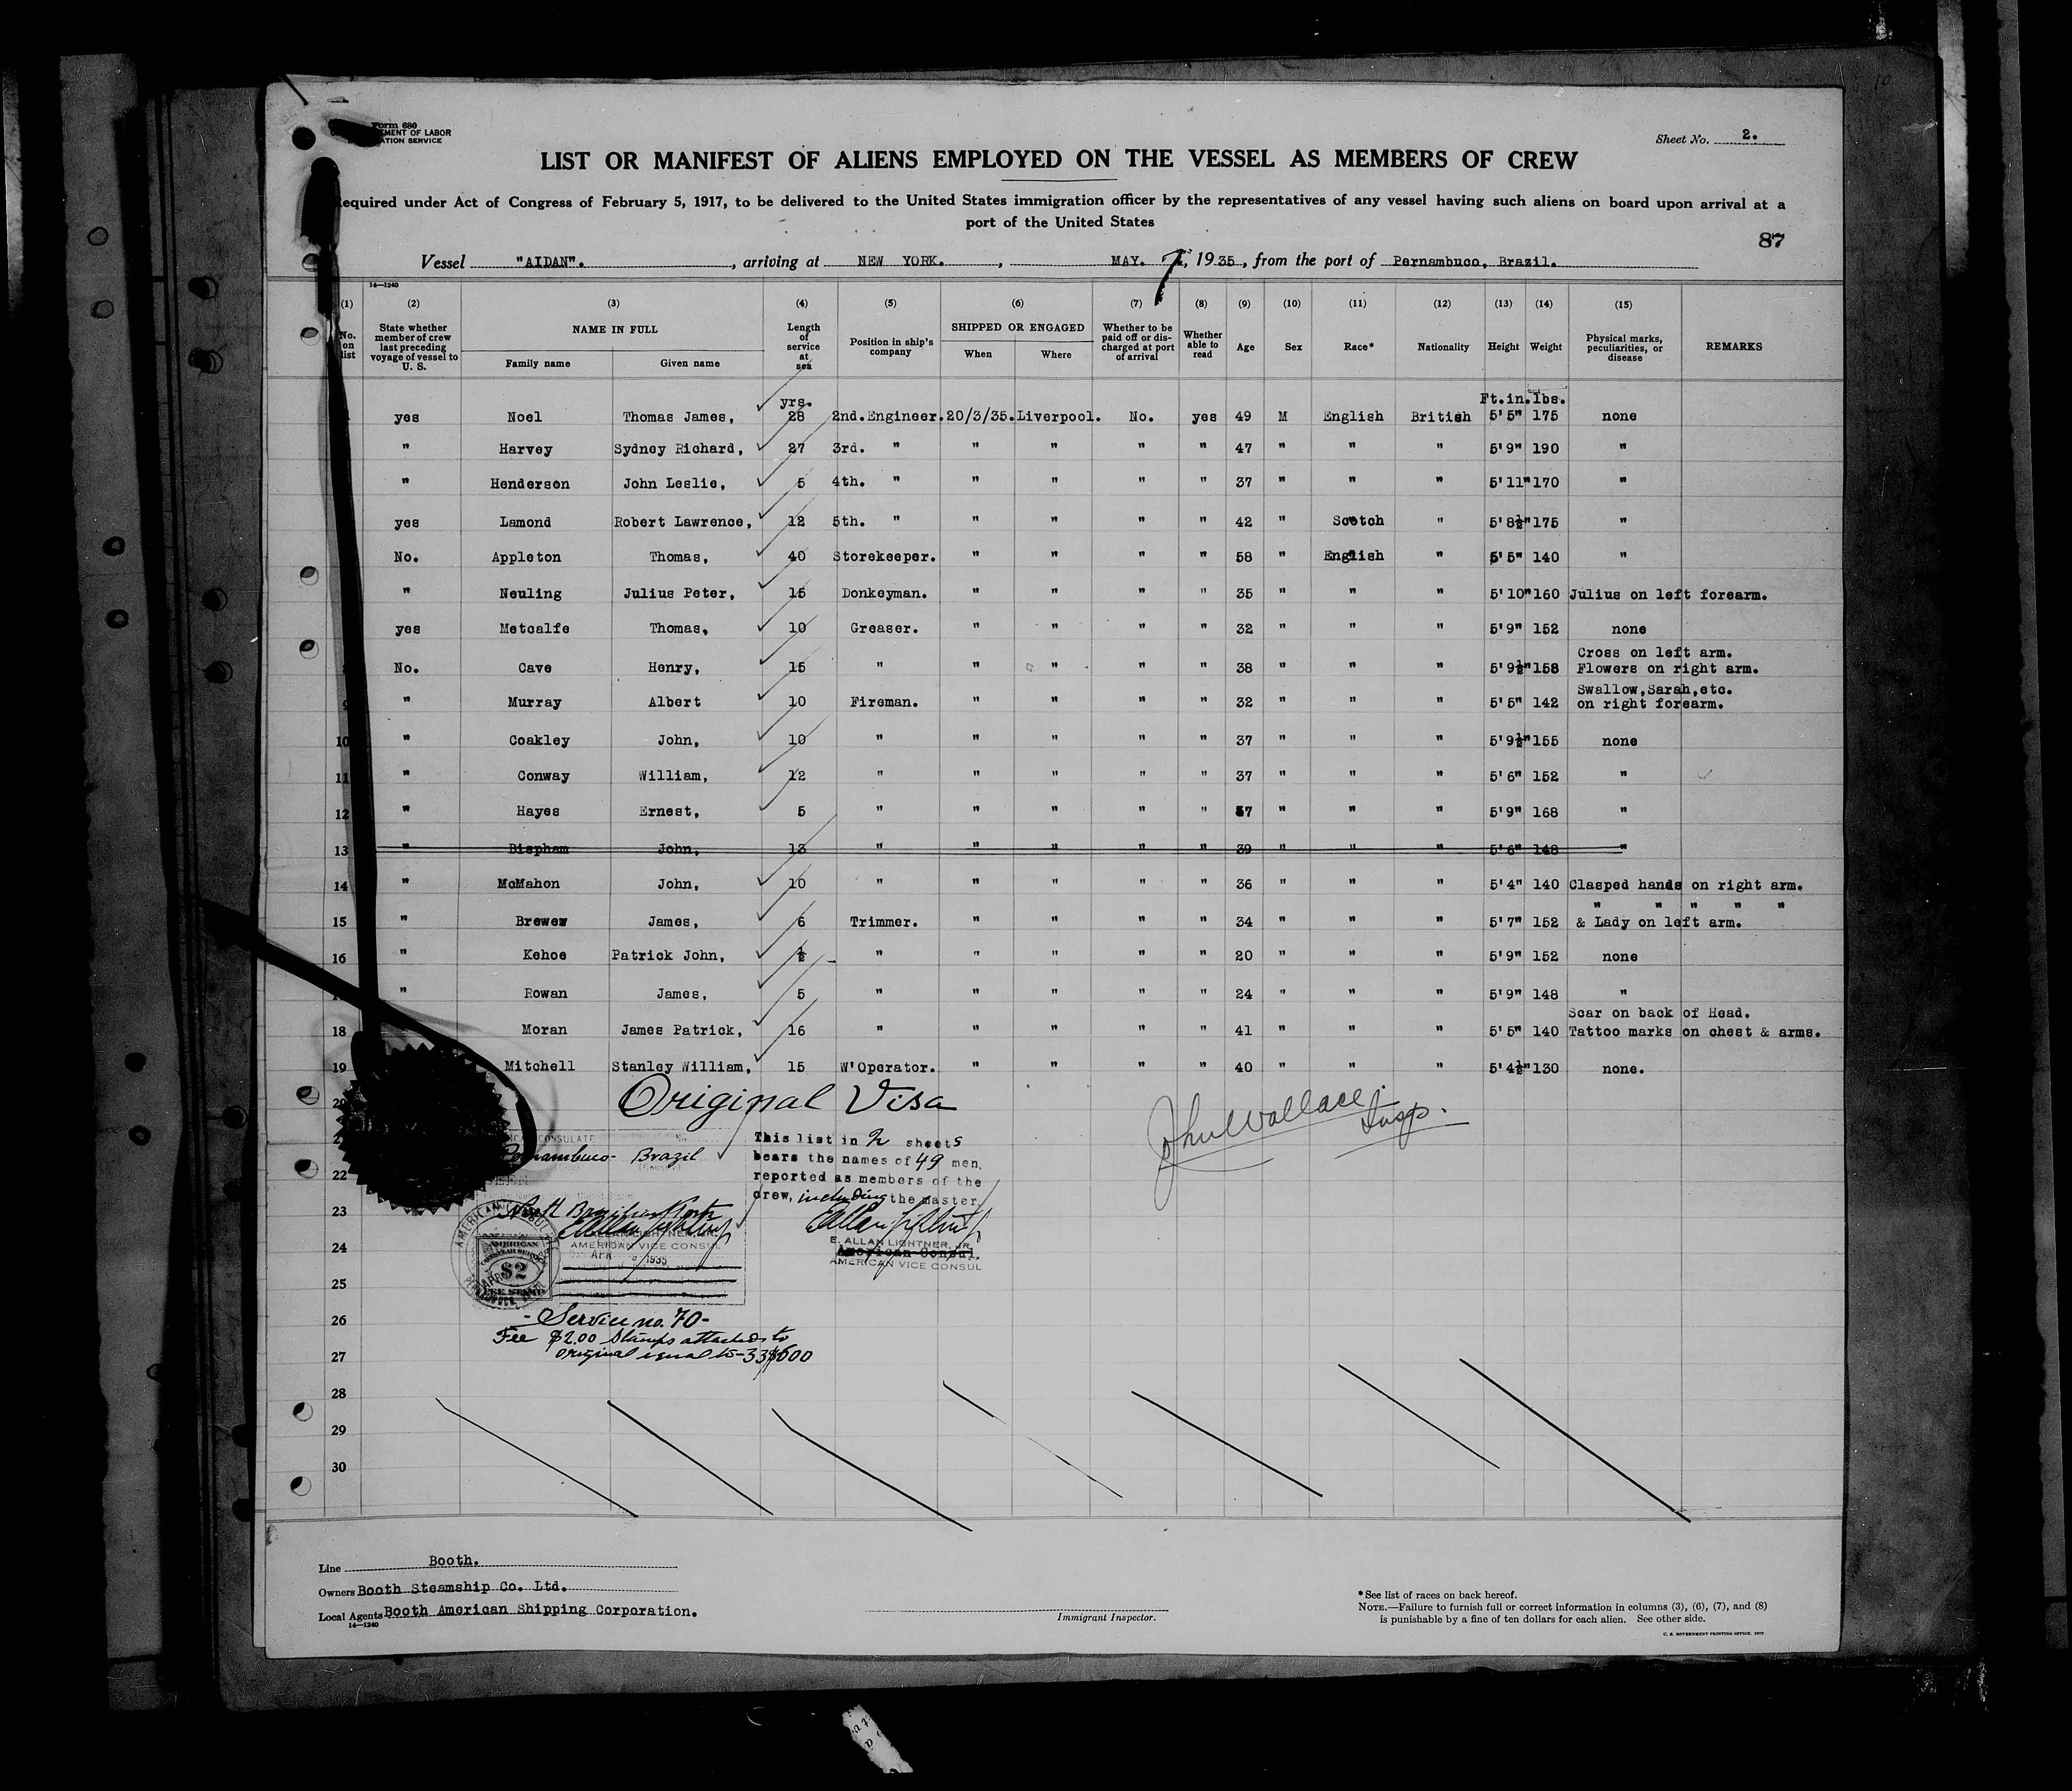 Form 680
MENT OF LABOR
ATION SERVICE
Sheet No. 2.
LIST OR MANIFEST OF ALIENS EMPLOYED ON THE VESSEL AS MEMBERS OF CREW
equired under Act of Congress of February 5, 1917, to be delivered to the United States immigration officer by the representatives of any vessel having such aliens on board upon arrival at a
port of the United States
87
Vessel "AIDAN". , arriving at NEW YORK. , MAY. 7, 1935, from the port of Pernambuco, Brazil.
14—1240
(1) (2) (3) (4) (5) (6) (7) (8) (9) (10) (11) (12) (13) (14) (15)
No. on list State whether member of crew last preceding voyage of vessel to U. S. NAME IN FULL Family name Given name Length of service at sea Position in ship's company SHIPPED OR ENGAGED When Where Whether to be paid off or discharged at port of arrival Whether able to read Age Sex Race* Nationality Height Weight Physical marks, peculiarities, or disease REMARKS
yrs. Ft.in. lbs.
yes Noel Thomas James, 28 2nd. Engineer. 20/3/35. Liverpool. No. yes 49 M English British 5'5" 175 none
" Harvey Sydney Richard, 27 3rd. " " " " " 47 " " " 5'9" 190 "
" Henderson John Leslie, 5 4th. " " " " " 37 " " " 5'11" 170 "
yes Lamond Robert Lawrence, 12 5th. " " " " " 42 " Scotch " 5'8½" 175 "
No. Appleton Thomas, 40 Storekeeper. " " " " 58 " English " 5'5" 140 "
" Neuling Julius Peter, 15 Donkeyman. " " " " 35 " " " 5'10" 160 Julius on left forearm.
yes Metcalfe Thomas, 10 Greaser. " " " " 32 " " " 5'9" 152 none
Cross on left arm.
No. Cave Henry, 15 " " " " " 38 " " " 5'9½" 158 Flowers on right arm.
Swallow, Sarah, etc.
9 " Murray Albert 10 Fireman. " " " " 32 " " " 5'5" 142 on right forearm.
10 " Coakley John, 10 " " " " " 37 " " " 5'9½" 155 none
11 " Conway William, 12 " " " " " 37 " " " 5'6" 152 "
12 " Hayes Ernest, 5 " " " " " 37 " " " 5'9" 168 "
13 " Bispham John, 13 " " " " " 39 " " " 5'6" 148 "
14 " McMahon John, 10 " " " " " 36 " " " 5'4" 140 Clasped hands on right arm.
" " " " "
15 " Brewer James, 6 Trimmer. " " " " 34 " " " 5'7" 152 & Lady on left arm.
16 " Kehoe Patrick John, ½ " " " " " 20 " " " 5'9" 152 none
" Rowan James, 5 " " " " " 24 " " " 5'9" 148 "
Scar on back of Head.
18 Moran James Patrick, 16 " " " " " 41 " " " 5'5" 140 Tattoo marks on chest & arms.
19 Mitchell Stanley William, 15 W'Operator. " " " " 40 " " " 5'4½" 130 none.
Original Visa
John Wallace Insp.
CONSULATE
Pernambuco - Brazil
This list in 2 sheets
bears the names of 49 men,
reported as members of the
crew, including the master
22
23
24
25
26
27
28
29
30
AMERICAN VICE CONSUL
APR 1935
E. ALLAN LIGHTNER, JR.
American Consul.
AMERICAN VICE CONSUL
AMERICAN
$2
FEE STAMP
- Service no. 70 -
Fee $2.00 Stamps attached to
original equal to - 33$600
Line Booth.
Owners Booth Steamship Co. Ltd.
Local Agents Booth American Shipping Corporation.
14—1240
Immigrant Inspector.
*See list of races on back hereof.
NOTE.—Failure to furnish full or correct information in columns (3), (6), (7), and (8)
is punishable by a fine of ten dollars for each alien. See other side.